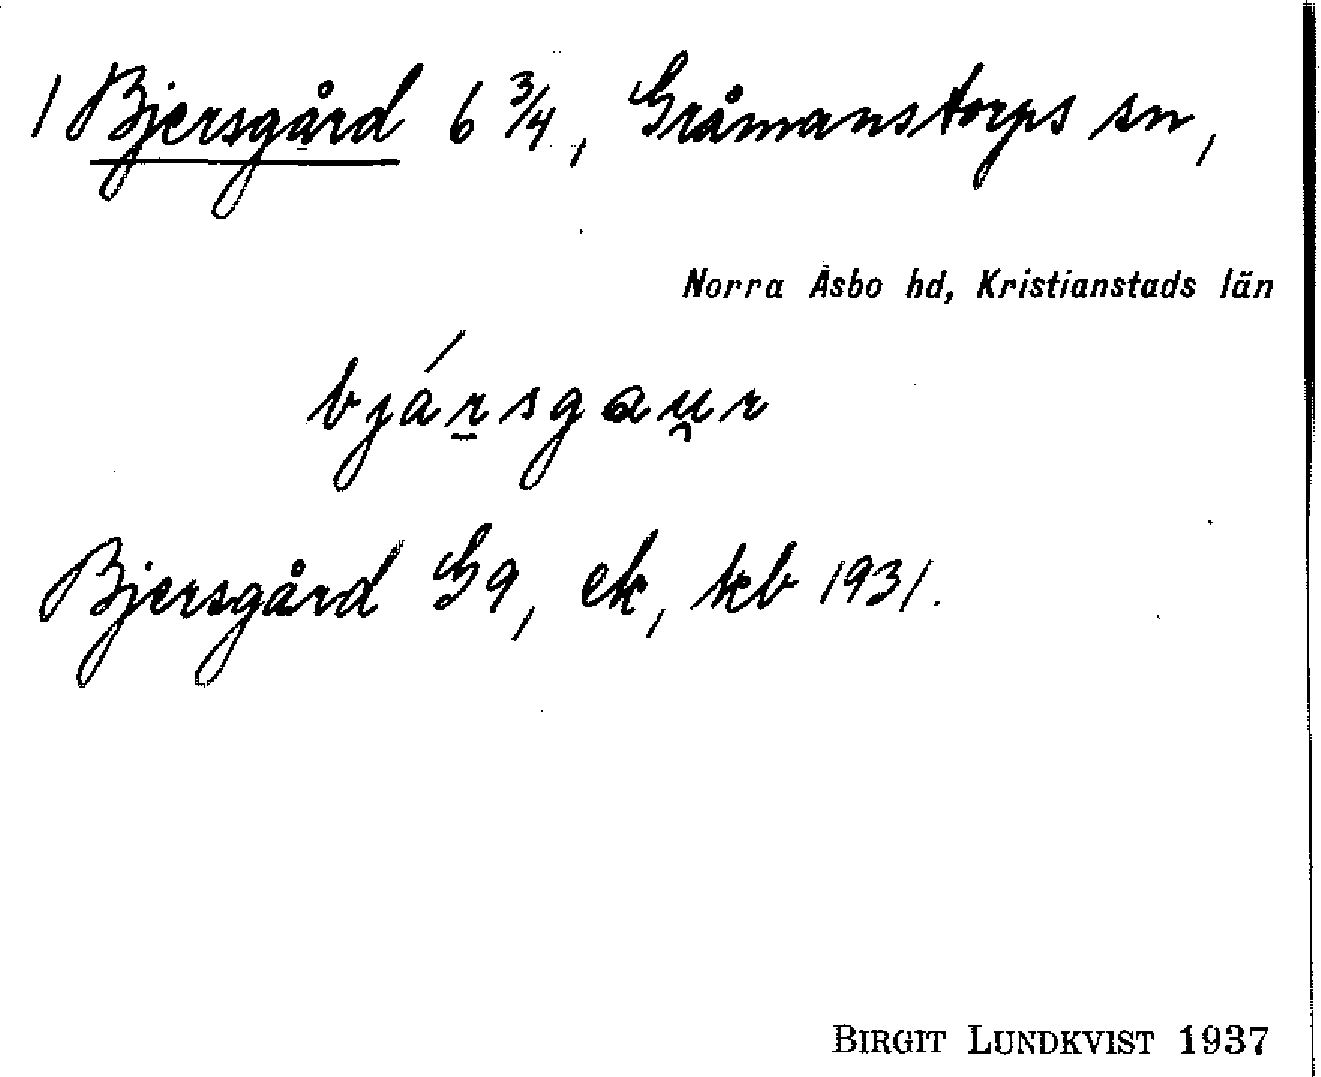 1 Bjersgård 6 3/4, Gråmanstorps sn,
Norra Åsbo hd, Kristianstads län
bjá́rsgau̯r
Bjersgård G9, ek, kb 1931.
BIRGIT LUNDKVIST 1937